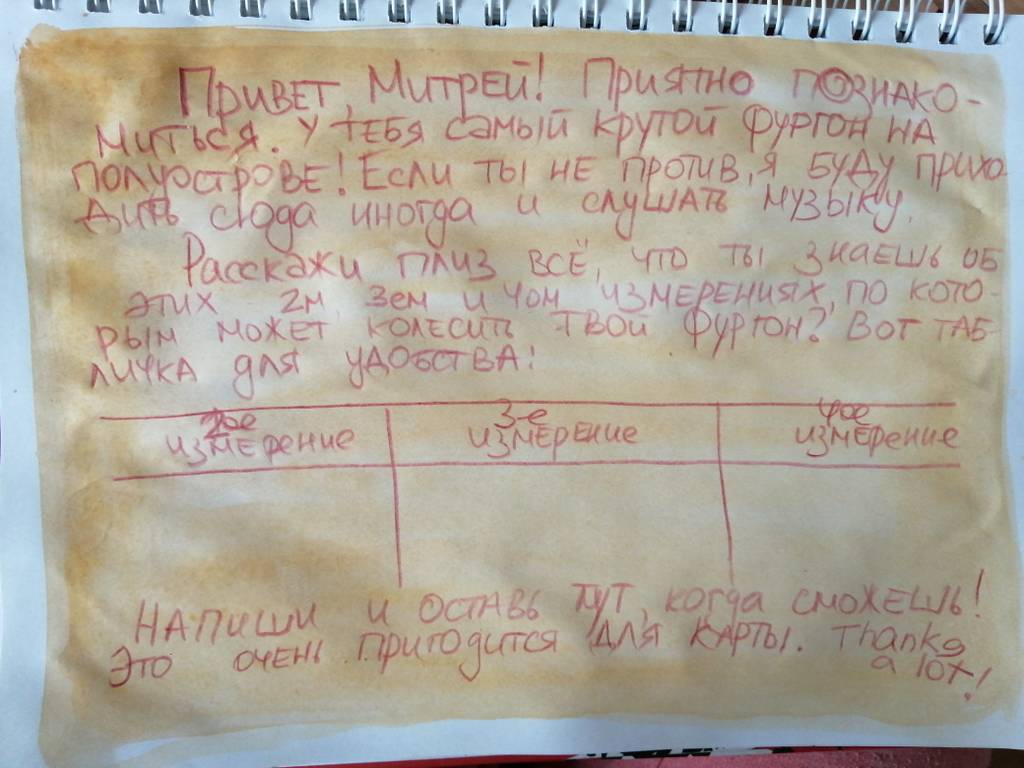 Привет, Митрей! Приятно познако-
миться. У тебя самый крутой фургон на
полуострове! Если ты не против, я буду прихо-
дить сюда иногда и слушать музыку.
Расскажи плиз всё, что ты знаешь об
этих 2м, 3ем и 4ом измерениях, по кото-
рым может колесить твой фургон? Вот таб-
личка для удобства:
2ое измерение
3-е измерение
4ое измерение
Напиши и оставь тут, когда сможешь!
Это очень пригодится для карты. Thanks
a lot!